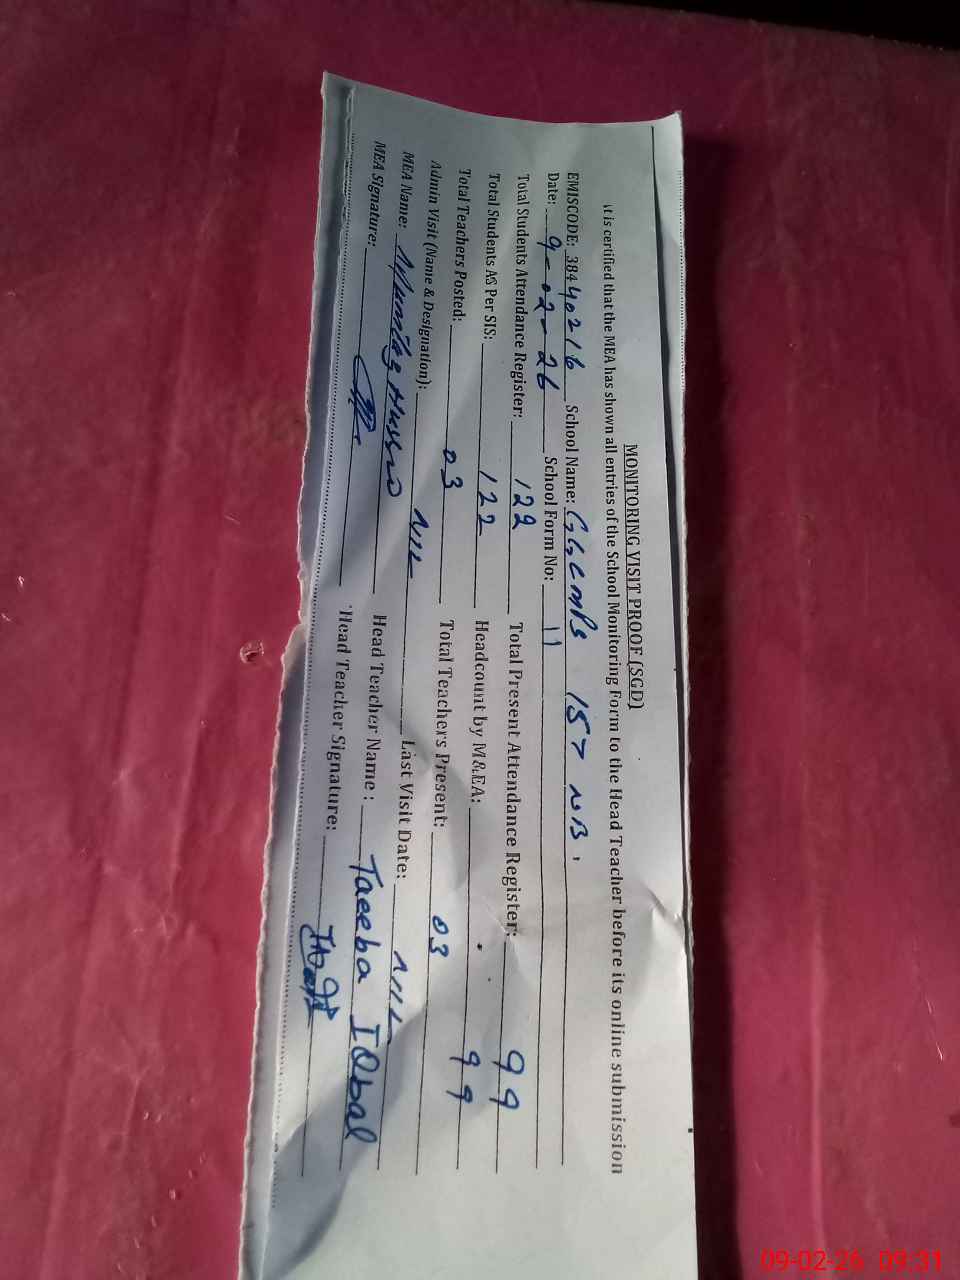 MONITORING VISIT PROOF (SGD)
It is certified that the MEA has shown all entries of the School Monitoring Form to the Head Teacher before its online submission
EMISCODE: 38440216 School Name: GGCMPS 157 NB.
Date: 9-02-26 School Form No: 11
Total Students Attendance Register: 122 Total Present Attendance Register: 99
Total Students AS Per SIS: 122 Headcount by M&EA: 99
Total Teachers Posted: 03 Total Teachers Present: 03
Admin Visit (Name & Designation): NIL Last Visit Date: NIL
MEA Name: Head Teacher Name : Taeeba IQbal
MEA Signature: Head Teacher Signature:
09-02-26 09:31